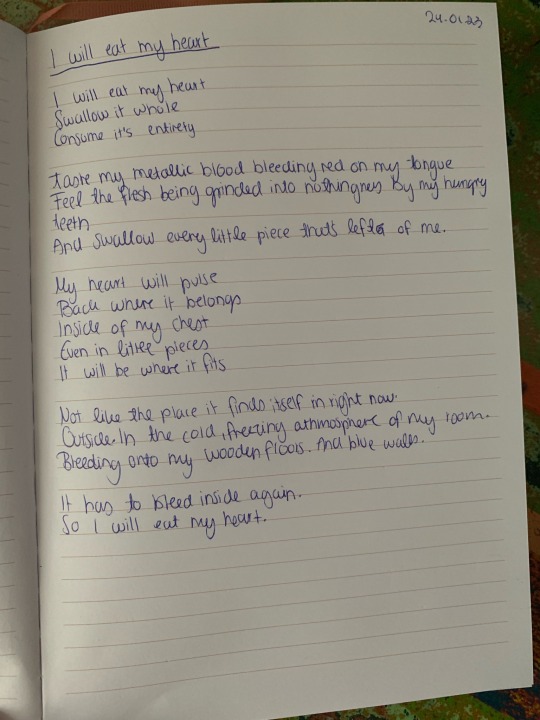 24.01.23
I will eat my heart
I will eat my heart
Swallow it whole
Consume it's entirety
Taste my metallic blood bleeding red on my tongue
Feel the flesh being grinded into nothingness by my hungry
teeth
And swallow every little piece that's left of me.
My heart will pulse
Back where it belongs
Inside of my chest
Even in little pieces
It will be where it fits
Not like the place it finds itself in right now.
Outside. In the cold, freezing athmosphere of my room.
Bleeding onto my wooden floors. And blue walls.
It has to bleed inside again.
So I will eat my heart.